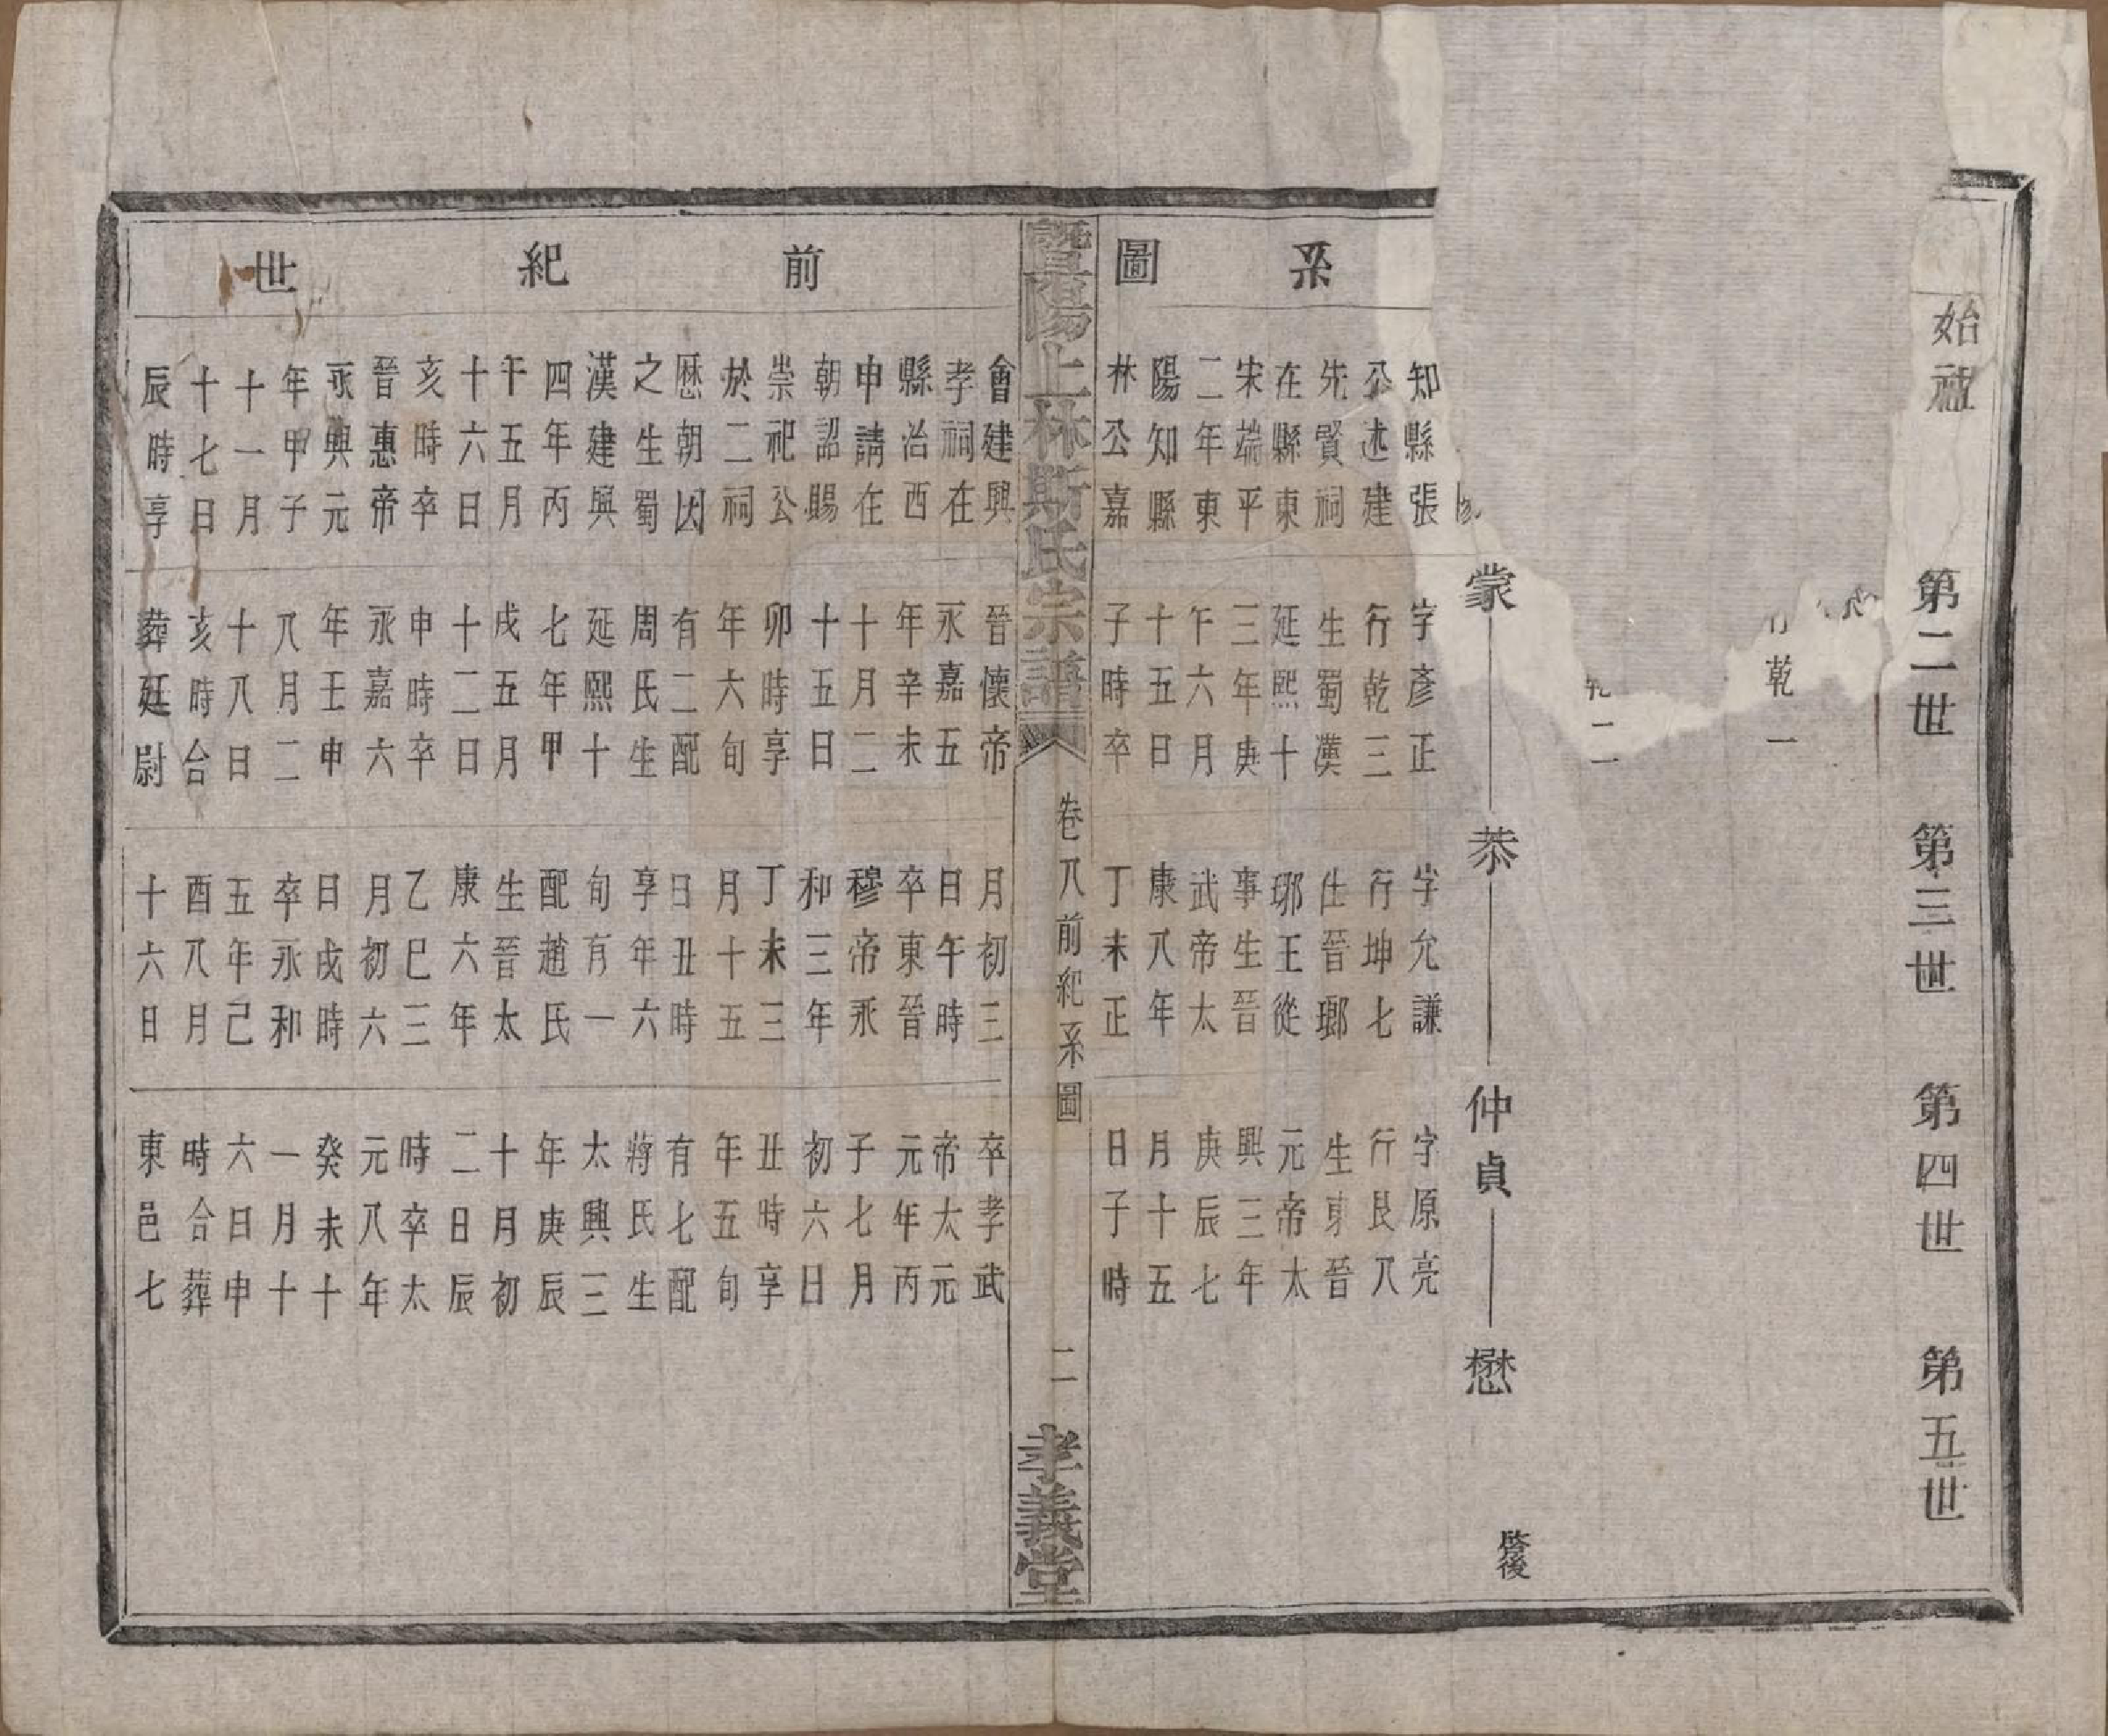 系圖
始祖
第二世
第三世
第四世
第五世
行乾一
乾二
蒙
恭
仲貞
懋
啓後
知縣張
公述建
先賢祠
在縣東
宋端平
二年東
陽知縣
林公嘉
會建興
孝祠在
縣治西
申請在
朝詔賜
崇祀公
於二祠
歷朝因
之生蜀
漢建興
四年丙
午五月
十六日
亥時卒
晉惠帝
永興元
年甲子
十一月
十七日
辰時享
字彥正
行乾三
生蜀漢
延熙十
三年庚
午六月
十五日
子時卒
晉懷帝
永嘉五
年辛未
十月二
十五日
卯時享
年六旬
有二配
周氏生
延熙十
七年甲
戌五月
十二日
申時卒
永嘉六
年壬申
八月二
十八日
亥時合
葬廷尉
字允謙
行坤七
仕晉瑯
琊王從
事生晉
武帝太
康八年
丁未正
月初三
日午時
卒東晉
穆帝永
和三年
丁未三
月十五
日丑時
享年六
旬有一
配趙氏
生晉太
康六年
乙巳三
月初六
日戌時
卒永和
五年己
酉八月
十六日
字原亮
行艮八
生東晉
元帝太
興三年
庚辰七
月十五
日子時
卒孝武
帝太元
元年丙
子七月
初六日
丑時享
年五旬
有七配
蔣氏生
太興三
年庚辰
十月初
二日辰
時卒太
元八年
癸未十
一月十
六日申
時合葬
東邑七
暨陽上林斯氏宗譜
卷八前紀系圖
二
孝義堂
前紀世